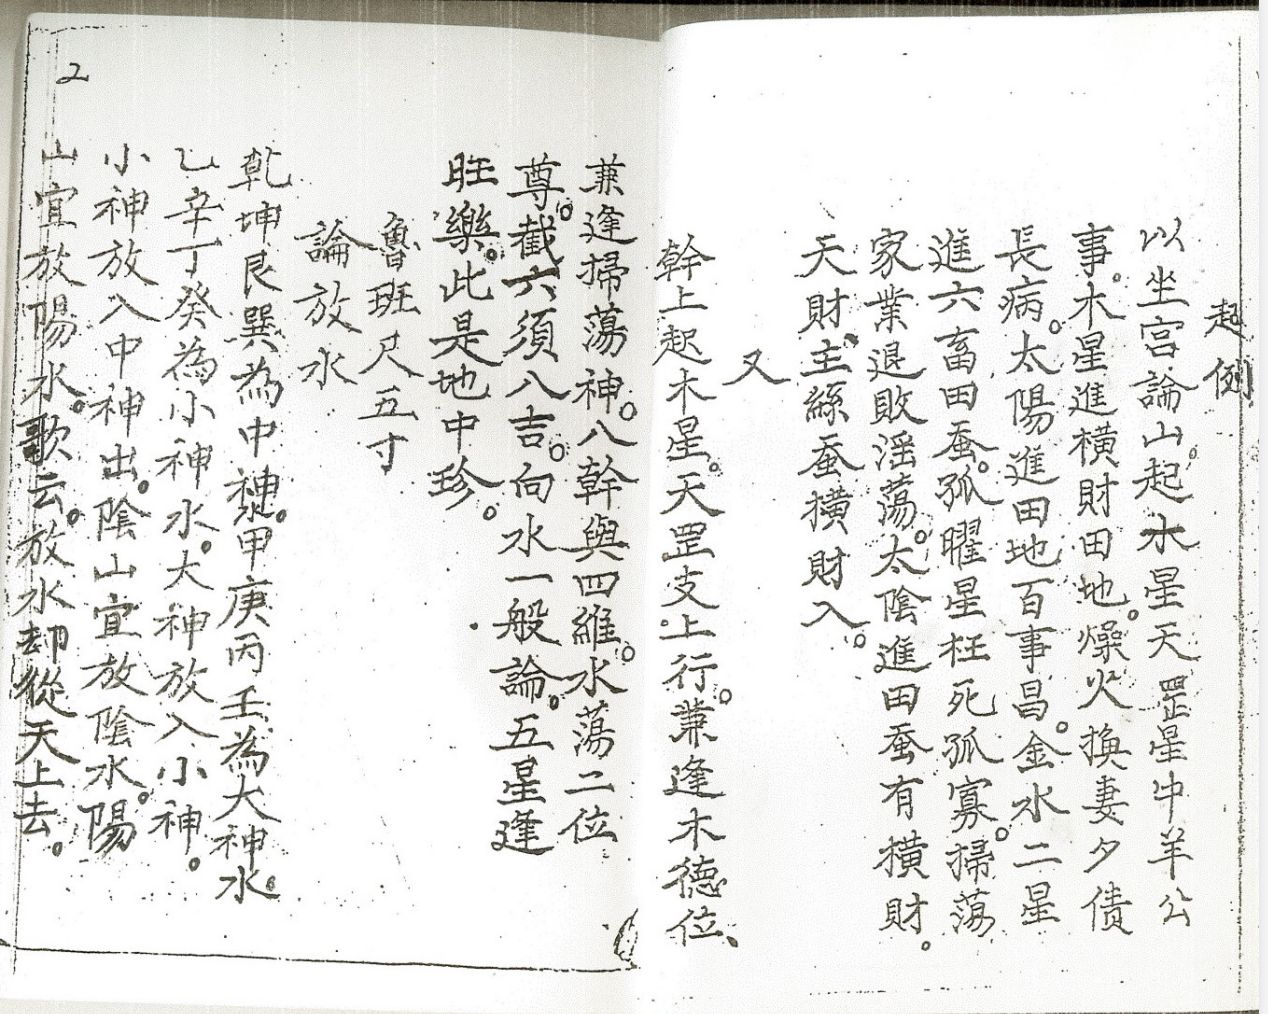 起例
以坐宮論山。起水星天罡星中羊公
事。木星進橫財田地。燥火換妻夕債
長病。太陽進田地百事昌。金水二星
進六畜田蚕。孤曜星枉死孤寡。掃蕩
家業退敗淫蕩。太陰進田蚕有橫財。
天財、主絲蚕橫財入。
又
幹上起木星。天罡支上行。兼逢木德位、
兼逢掃蕩神。八幹與四維。水蕩二位
尊。截六須八吉。向水一般論。五星逢
旺樂。此是地中珍。
魯班尺五寸
論放水
乾坤艮巽為中神。甲庚丙壬為大神水。
乙辛丁癸為小神水。大神放入小神。
小神放入中神出。陰山宜放陰水。陽
山宜放陽水。歌云。放水却從天上去。
2